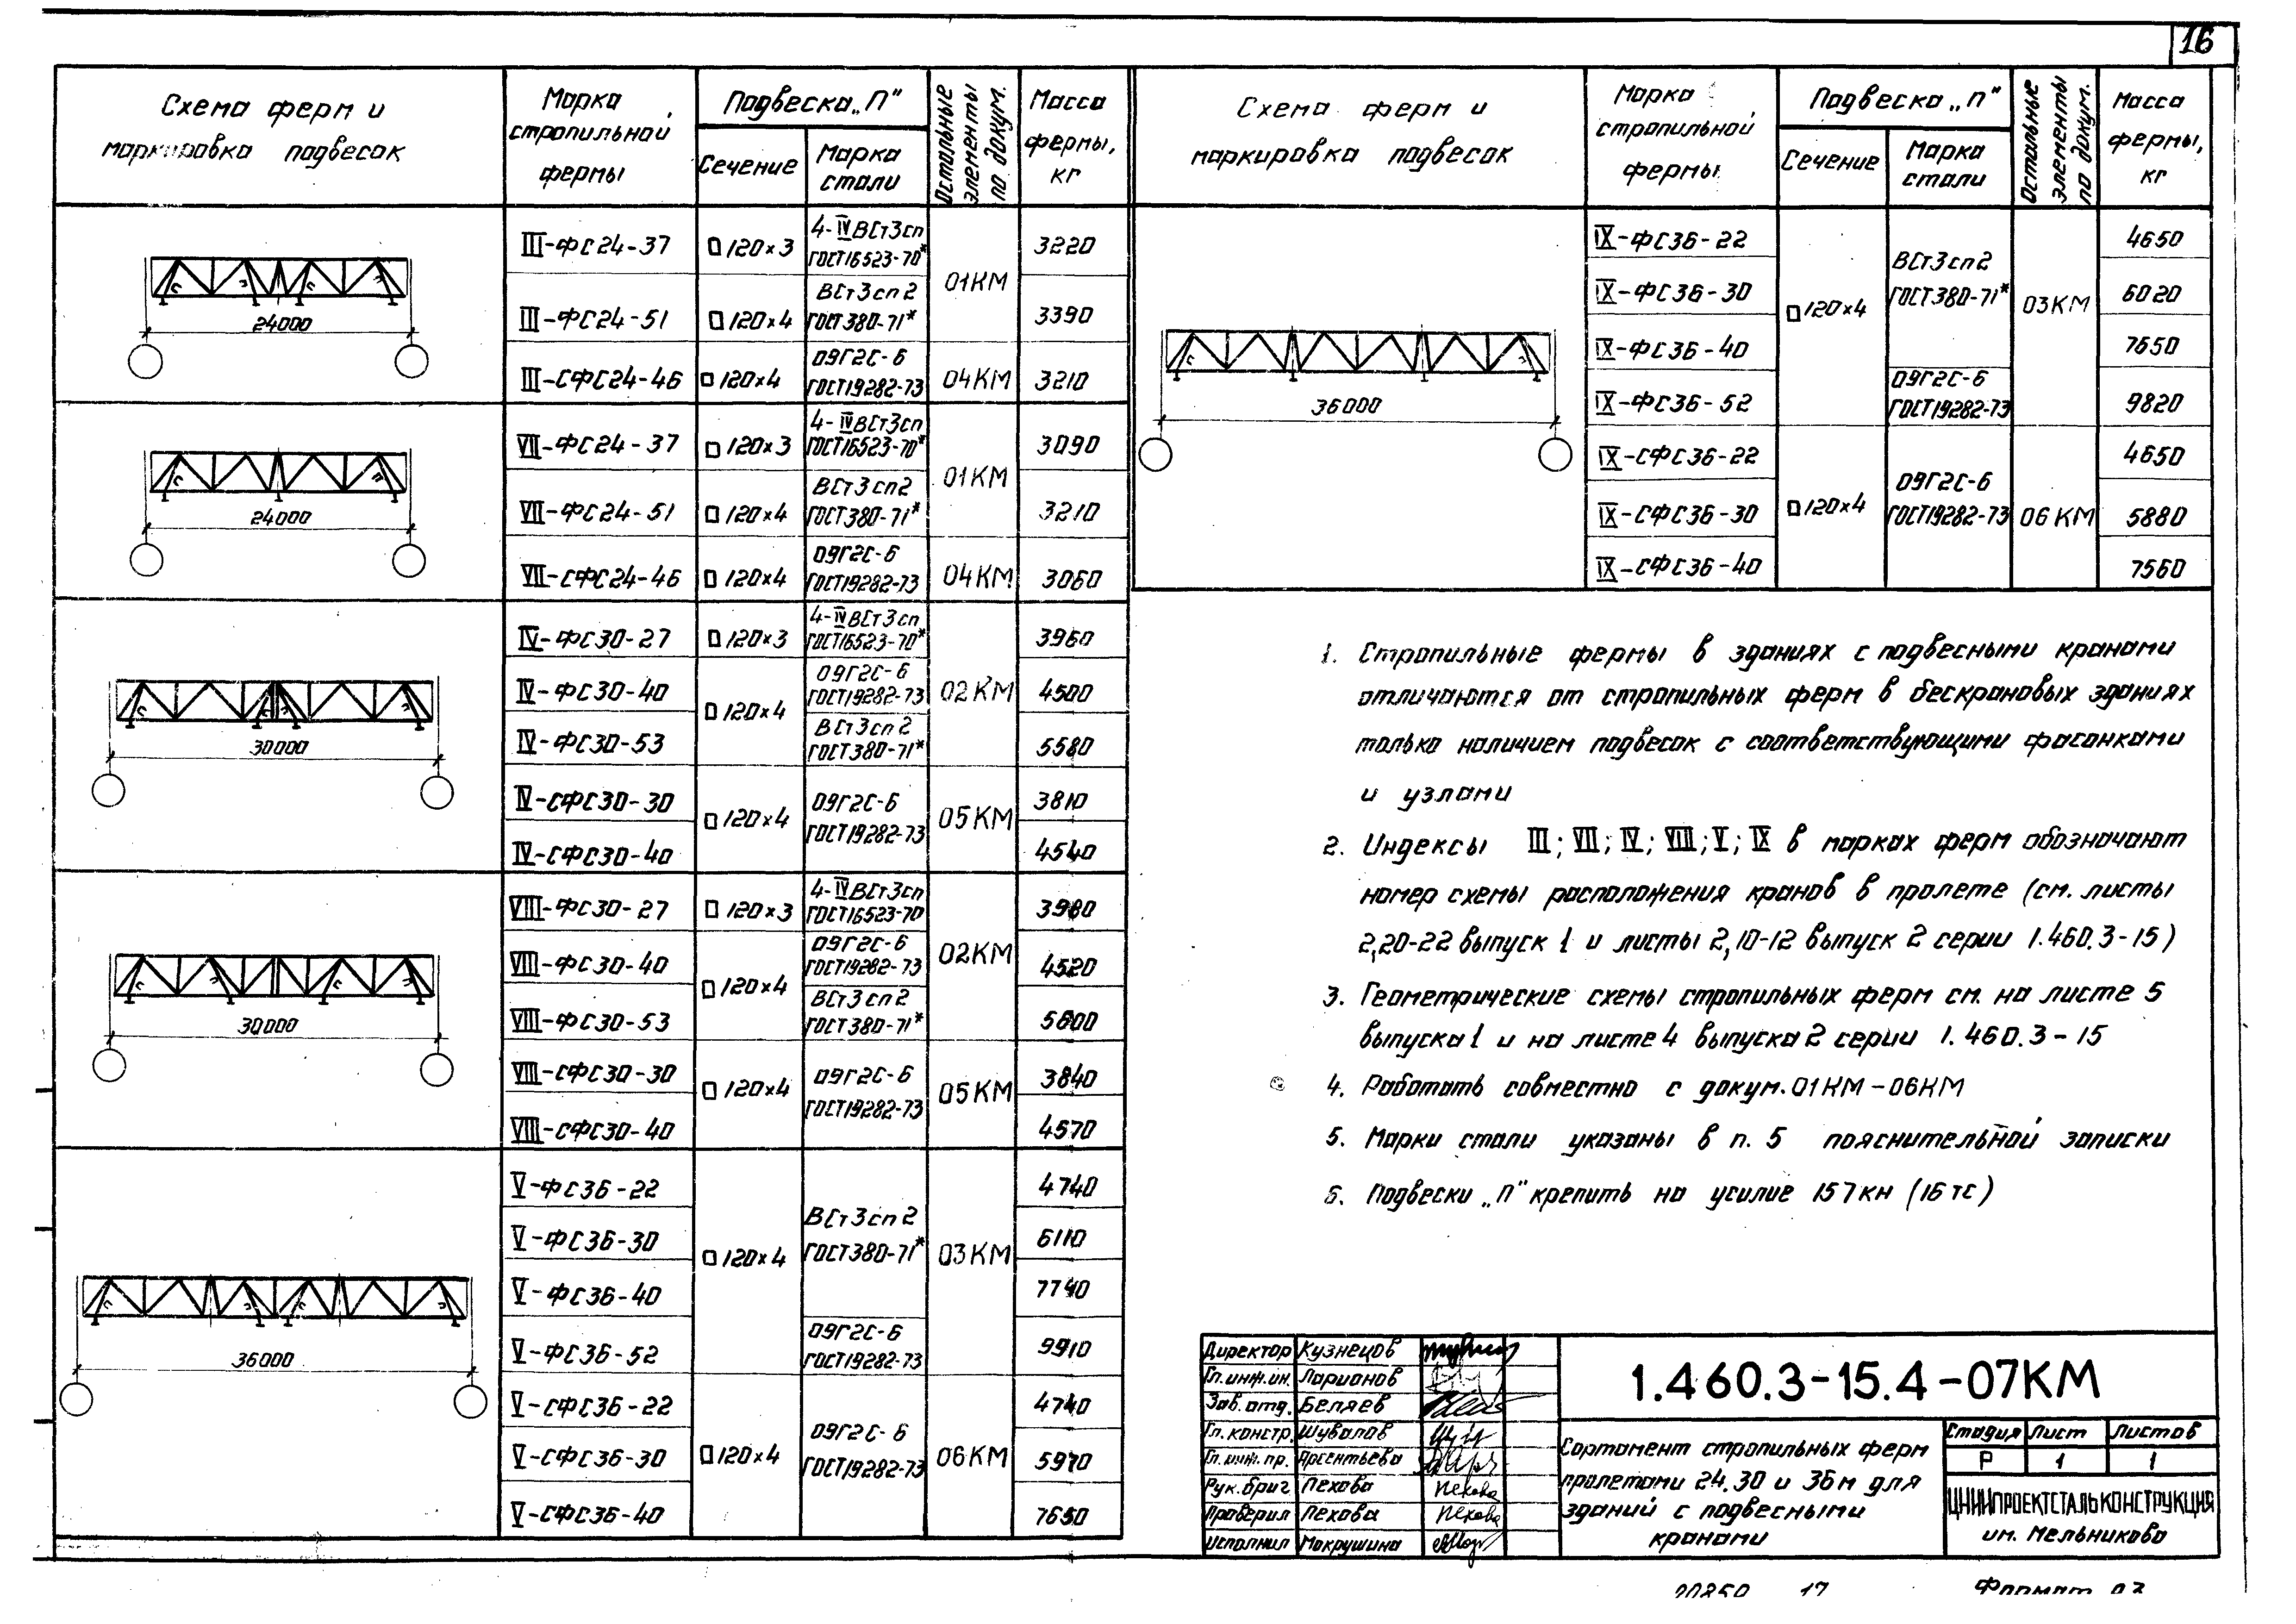 16
Схема ферм и
маркировка подвесок
Марка
стропильной
фермы
Подвеска „П"
Сечение
Марка
стали
Остальные
элементы
по докум.
Масса
фермы,
кг
24000
III-ФС24-37
□120×3
4-IVВСт3сп
ГОСТ16523-70*
01КМ
3220
III-ФС24-51
□120×4
ВСт3сп2
ГОСТ380-71*
3390
III-СФС24-46
□120×4
09Г2С-6
ГОСТ19282-73
04КМ
3210
24000
VII-ФС24-37
□120×3
4-IVВСт3сп
ГОСТ16523-70*
01КМ
3090
VII-ФС24-51
□120×4
ВСт3сп2
ГОСТ380-71*
3210
VII-СФС24-46
□120×4
09Г2С-6
ГОСТ19282-73
04КМ
3060
30000
IV-ФС30-27
□120×3
4-IVВСт3сп
ГОСТ16523-70*
3960
IV-ФС30-40
□120×4
09Г2С-6
ГОСТ19282-73
02КМ
4500
IV-ФС30-53
ВСт3сп2
ГОСТ380-71*
5580
IV-СФС30-30
□120×4
09Г2С-6
ГОСТ19282-73
05КМ
3810
IV-СФС30-40
4540
30000
VIII-ФС30-27
□120×3
4-IVВСт3сп
ГОСТ16523-70
02КМ
3980
VIII-ФС30-40
□120×4
09Г2С-6
ГОСТ19282-73
4520
VIII-ФС30-53
ВСт3сп2
ГОСТ380-71*
5600
VIII-СФС30-30
□120×4
09Г2С-6
ГОСТ19282-73
05КМ
3840
VIII-СФС30-40
4570
36000
V-ФС36-22
4740
V-ФС36-30
□120×4
ВСт3сп2
ГОСТ380-71*
03КМ
6110
V-ФС36-40
7740
V-ФС36-52
09Г2С-6
ГОСТ19282-73
9910
V-СФС36-22
4740
V-СФС36-30
□120×4
09Г2С-6
ГОСТ19282-73
06КМ
5970
V-СФС36-40
7650
Схема ферм и
маркировка подвесок
Марка
стропильной
фермы
Подвеска „П"
Сечение
Марка
стали
Остальные
элементы
по докум.
Масса
фермы,
кг
36000
IX-ФС36-22
4650
IX-ФС36-30
□120×4
ВСт3сп2
ГОСТ380-71*
03КМ
6020
IX-ФС36-40
7650
IX-ФС36-52
09Г2С-6
ГОСТ19282-73
9820
IX-СФС36-22
4650
IX-СФС36-30
□120×4
09Г2С-6
ГОСТ19282-73
06КМ
5880
IX-СФС36-40
7560
1. Стропильные фермы в зданиях с подвесными кранами
отличаются от стропильных ферм в бескрановых зданиях
только наличием подвесок с соответствующими фасонками
и узлами
2. Индексы III; VII; IV; VIII; V; IX в марках ферм обозначают
номер схемы расположения кранов в пролете (см. листы
2,20-22 выпуск 1 и листы 2,10-12 выпуск 2 серии 1.460.3-15)
3. Геометрические схемы стропильных ферм см. на листе 5
выпуска 1 и на листе 4 выпуска 2 серии 1.460.3-15
4. Работать совместно с докум. 01КМ-06КМ
5. Марки стали указаны в п. 5 пояснительной записки
6. Подвески „П" крепить на усилие 157кн (16тс)
Директор Кузнецов
Гл. инж. ин. Ларионов
Зав. отд. Беляев
Гл. констр. Шувалов
Гл. инж. пр. Арсентьева
Рук. бриг Пехова Пехова
Проверил Пехова Пехова
Исполнил Мокрушина
1.460.3-15.4-07КМ
Сортамент стропильных ферм
пролетами 24,30 и 36м для
зданий с подвесными
кранами
Стадия Лист Листов
Р 1 1
ЦНИИПРОЕКТСТАЛЬКОНСТРУКЦИЯ
им. Мельникова
17
Формат